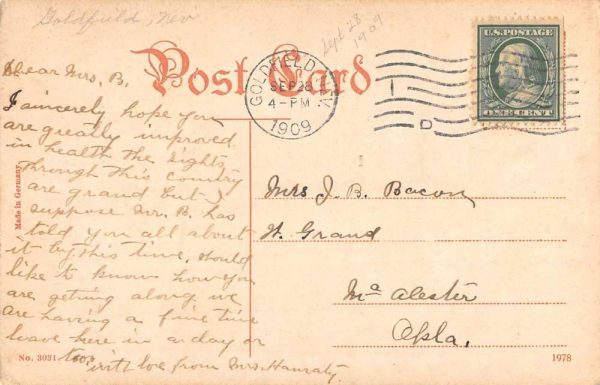 Goldfield, Nev
Sept 28
1909
Post Card
GOLDFIELD
NEV
SEP 28
4-PM
1909
D
U.S. POSTAGE
ONE CENT
Dear Mrs. B.
I sincerely hope you
are greatly improved
in health the sights
through this country
are grand but I
suppose Mr. B. has
told you all about
it by this time, should
like to know how you
are getting along we
are having a fine time
leave here in a day or
too. with love from Mrs Hanraty.
Mrs J. B. Bacon
W. Grand
Mc Alester
Okla.
Made in Germany.
No. 3031
1978